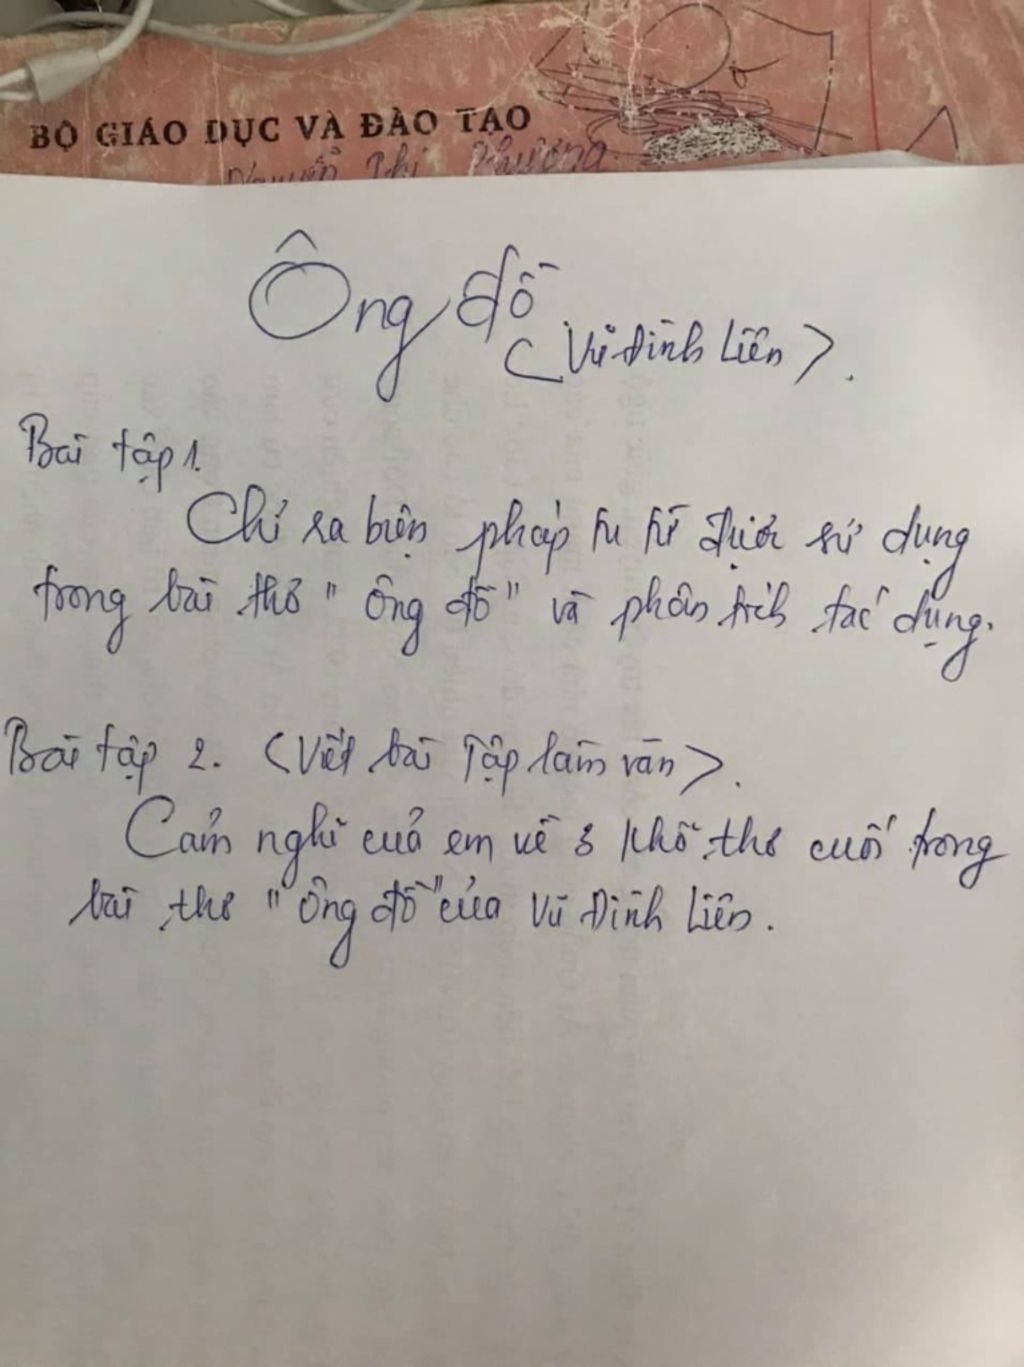 BỘ GIÁO DỤC VÀ ĐÀO TẠO
Nguyễn Thị Phương
Ông đồ
(Vũ Đình Liên).
Bài tập 1.
Chỉ ra biện pháp tu từ được sử dụng
trong bài thơ "Ông đồ" và phân tích tác dụng.
Bài tập 2. (Viết bài Tập làm văn).
Cảm nghĩ của em về 3 khổ thơ cuối trong
bài thơ "Ông đồ" của Vũ Đình Liên.